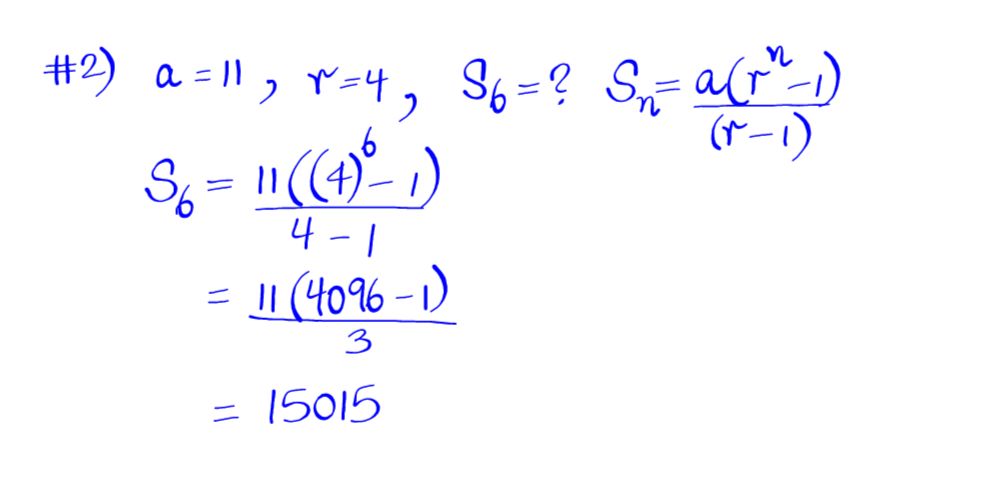 #2) a = 11 , r = 4 , S₆ = ? Sₙ = a(rⁿ - 1) / (r - 1)
S₆ = 11((4)⁶ - 1) / 4 - 1
= 11(4096 - 1) / 3
= 15015